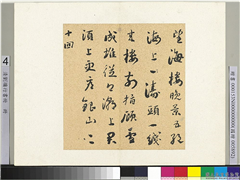 望海樓晚景五絕
海上濤頭一線
來樓前指顧雪
成堆從今潮上君
須上更看銀山二
十回
4